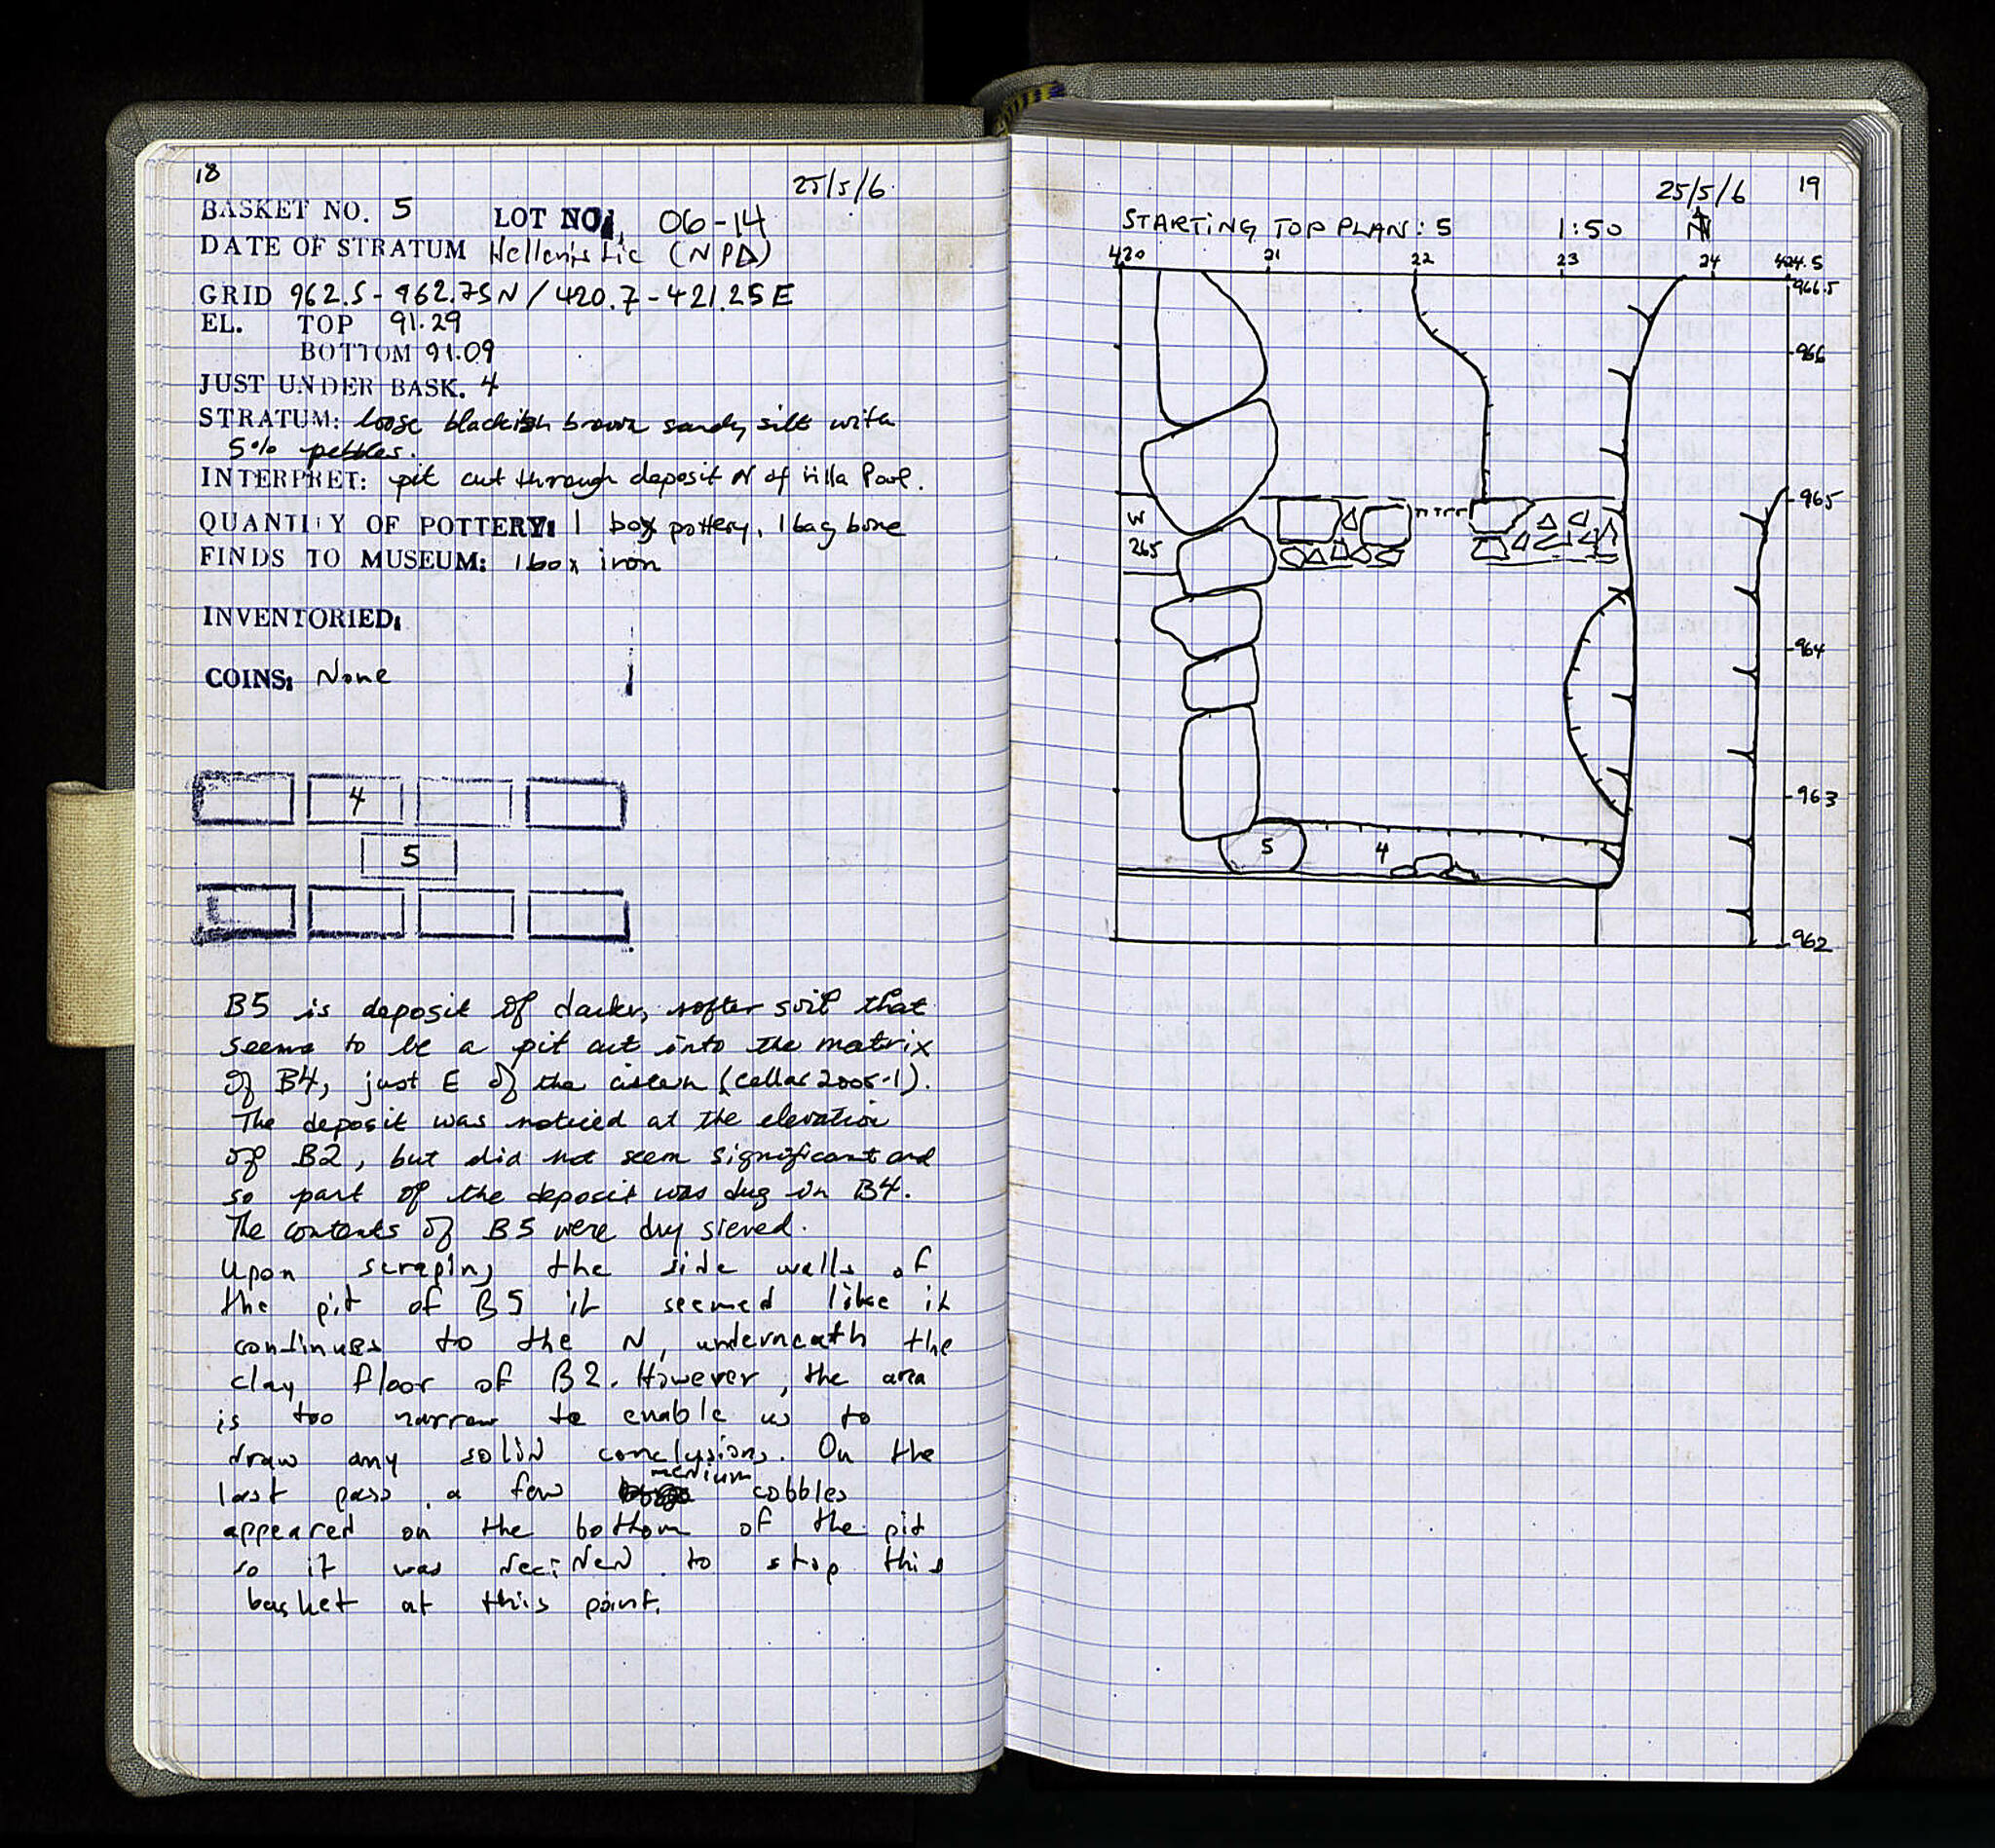 18
25/5/6
BASKET NO. 5 LOT NO. 06-14
DATE OF STRATUM Hellenistic (NPD)
GRID 962.5-962.75N/420.7-421.25E
EL. TOP 91.29
BOTTOM 91.09
JUST UNDER BASK. 4
STRATUM: loose blackish brown sandy silt with
5% pebbles.
INTERPRET: pit cut through deposit N of Villa Pool.
QUANTITY OF POTTERY: 1 box pottery, 1 bag bone
FINDS TO MUSEUM: 1 box iron
INVENTORIED:
COINS: None
4
5
B5 is deposit of darker, softer soil that
seems to be a pit cut into the matrix
of B4, just E of the cistern (Cellar 2005-1).
The deposit was noticed at the elevation
of B2, but did not seem significant and
so part of the deposit was dug in B4.
The contents of B5 were dry sieved.
Upon scraping the side walls of
the pit of B5 it seemed like it
continues to the N, underneath the
clay floor of B2. However, the area
is too narrow to enable us to
draw any solid conclusions. On the
last pass, a few medium cobbles
appeared on the bottom of the pit
so it was decided to stop this
basket at this point.
25/5/6 19
STARTING TOP PLAN: 5 1:50 N
420 21 22 23 24 424.5
966.5
966
965
W
265
964
963
5 4
962